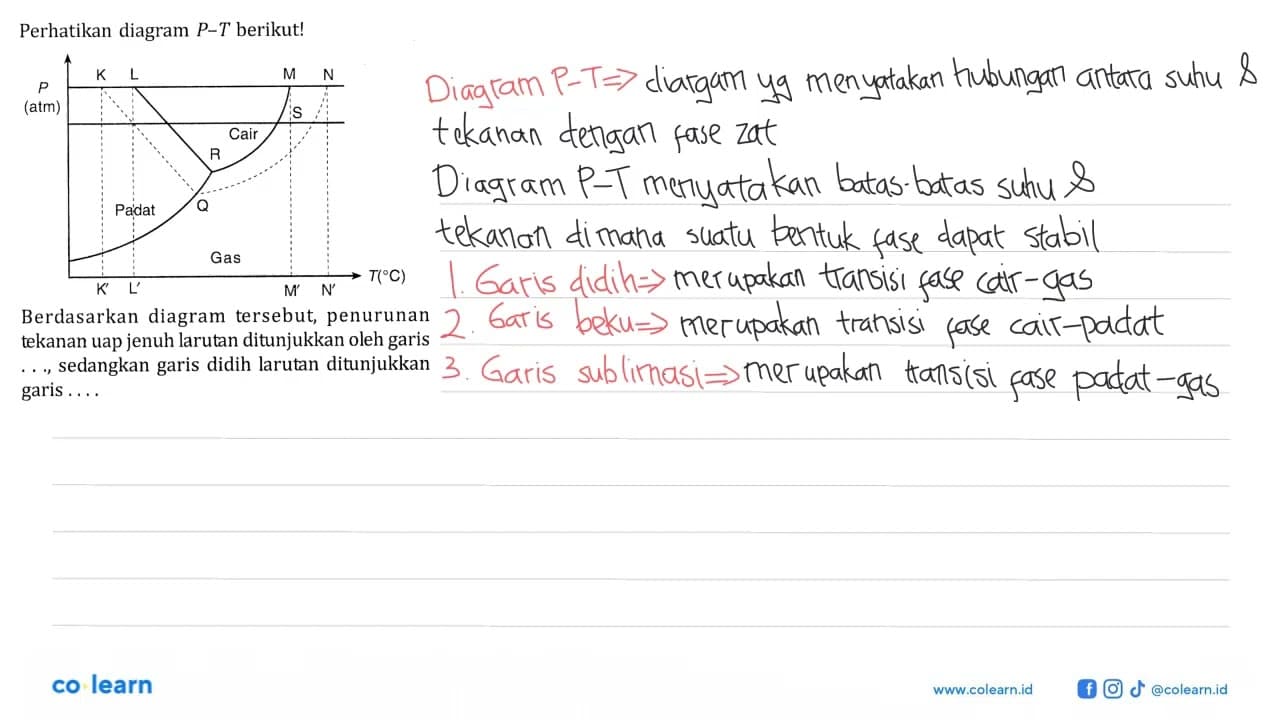 Perhatikan diagram P–T berikut!
P
(atm)
K L M N
S
Cair
R
Padat
Q
Gas
T(°C)
K′ L′ M′ N′
Berdasarkan diagram tersebut, penurunan
tekanan uap jenuh larutan ditunjukkan oleh garis
. . ., sedangkan garis didih larutan ditunjukkan
garis . . . .
Diagram P-T => diargam yg menyatakan hubungan antara suhu &
tekanan dengan fase zat
Diagram P-T menyatakan batas-batas suhu &
tekanan dimana suatu bentuk fase dapat stabil
1. Garis didih => merupakan transisi fase cair-gas
2. Garis beku => merupakan transisi fase cair-padat
3. Garis sublimasi => merupakan transisi fase padat-gas
co learn
www.colearn.id
@colearn.id